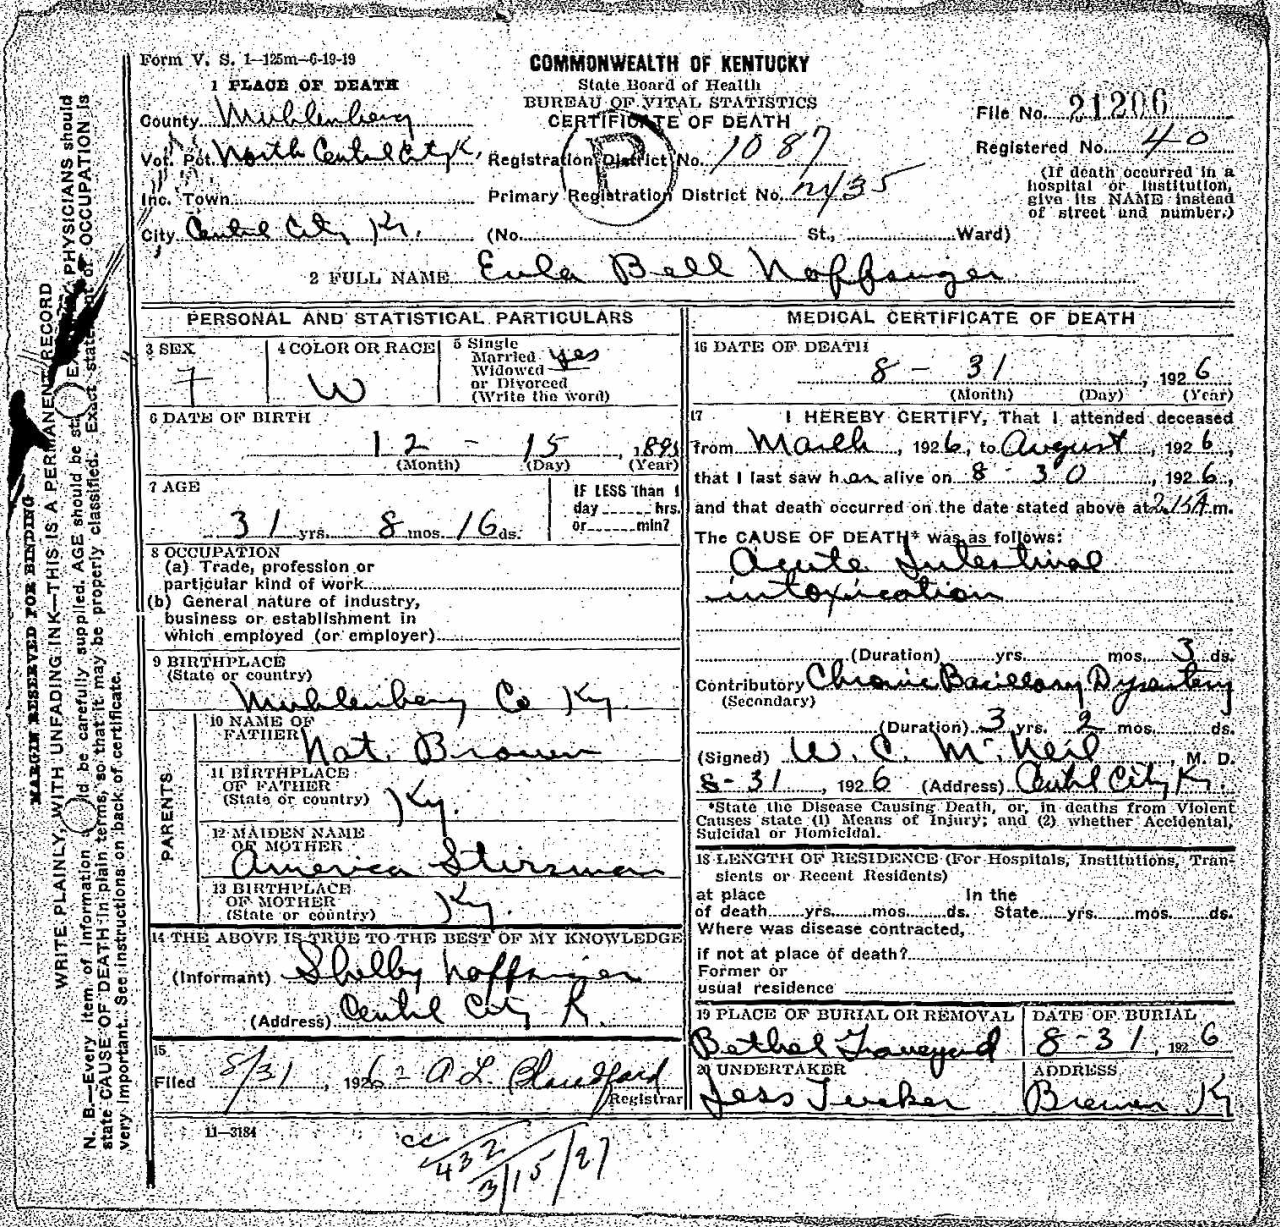 Form V. S. 1—125m—6-19-19
COMMONWEALTH OF KENTUCKY
State Board of Health
BUREAU OF VITAL STATISTICS
CERTIFICATE OF DEATH
P
File No. 21206
Registered No. 40
(If death occurred in a hospital or institution, give its NAME instead of street and number.)
1 PLACE OF DEATH
County Muhlenberg
Vot. Pct. North Central City K.
Registration District No. 1087
Inc. Town
Primary Registration District No. 7135
City Central City Ky. (No. St., Ward)
2 FULL NAME Eula Bell Noffsinger
PERSONAL AND STATISTICAL PARTICULARS
3 SEX F
4 COLOR OR RACE W
5 Single
Married yes
Widowed
or Divorced
(Write the word)
6 DATE OF BIRTH
12 - 15, 189
(Month) (Day) (Year)
7 AGE
31 yrs. 8 mos. 16 ds.
IF LESS than 1
day hrs.
or min?
8 OCCUPATION
(a) Trade, profession or
particular kind of work
(b) General nature of industry,
business or establishment in
which employed (or employer)
9 BIRTHPLACE
(State or country)
Muhlenberg Co Ky.
PARENTS
10 NAME OF
FATHER Nat. Brown
11 BIRTHPLACE
OF FATHER
(State or country) Ky.
12 MAIDEN NAME
OF MOTHER
America Stirsman
13 BIRTHPLACE
OF MOTHER
(State or country) Ky.
14 THE ABOVE IS TRUE TO THE BEST OF MY KNOWLEDGE
(Informant) Shelby Noffsinger
(Address) Central City K.
15
Filed 8/31, 1926 - A L. Blandford
Registrar
11—3184
MEDICAL CERTIFICATE OF DEATH
16 DATE OF DEATH
8 - 31, 1926
(Month) (Day) (Year)
17 I HEREBY CERTIFY, That I attended deceased
from March, 1926, to August, 1926,
that I last saw her alive on 8 - 30, 1926,
and that death occurred on the date stated above at 2 15A m.
The CAUSE OF DEATH* was as follows:
Acute Intestinal
intoxication
(Duration) yrs. mos. 3 ds.
Contributory Chronic Bacillary Dysentery
(Secondary)
(Duration) 3 yrs. 2 mos. ds.
(Signed) W. C. McNeil, M. D.
8-31, 1926 (Address) Central City Ky.
*State the Disease Causing Death, or, in deaths from Violent
Causes state (1) Means of Injury; and (2) whether Accidental,
Suicidal or Homicidal.
18 LENGTH OF RESIDENCE (For Hospitals, Institutions, Tran-
sients or Recent Residents)
at place In the
of death yrs. mos. ds. State yrs. mos. ds.
Where was disease contracted,
if not at place of death?
Former or
usual residence
19 PLACE OF BURIAL OR REMOVAL
Bethel Graveyard
DATE OF BURIAL
8-31, 1926
20 UNDERTAKER
Jess Tucker
ADDRESS
Bremen Ky
432
3/15/27
MARGIN RESERVED FOR BINDING
WRITE PLAINLY, WITH UNFADING INK—THIS IS A PERMANENT RECORD
N. B.—Every item of information should be carefully supplied. AGE should be stated PHYSICIANS should
state CAUSE OF DEATH in plain terms, so that it may be properly classified. Exact statement of OCCUPATION is
very important. See instructions on back of certificate.